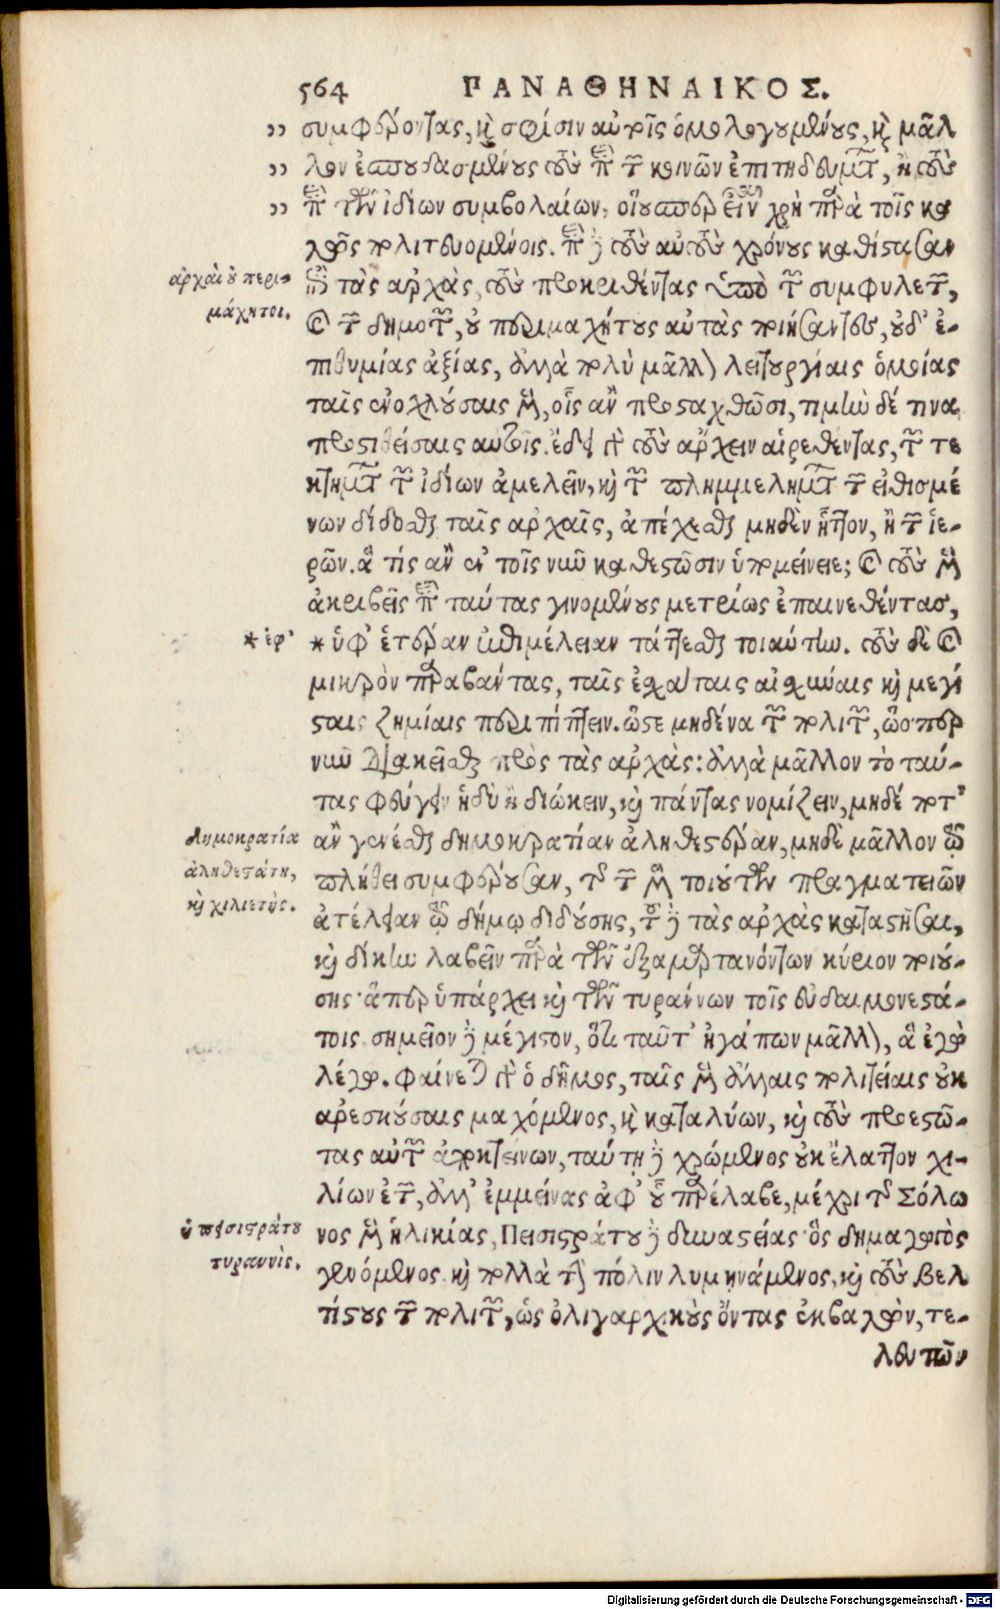 564 ΠΑΝΑΘΗΝΑΙΚΟΣ.
” συμφέροντας, καὶ σφίσιν αὐτοῖς ὁμολογουμένους, καὶ μᾶλ
” λον ἐσπουδασμένους τοὺς περὶ τῶν κοινῶν ἐπιτηδευμάτων, ἢ τοὺς
” περὶ τῶν ἰδίων συμβολαίων, οἵους περ εἶναι χρὴ παρὰ τοῖς κα
λῶς πολιτευομένοις. περὶ δὲ τοὺς αὐτοὺς χρόνους καθίστασαν
ἐπὶ τὰς ἀρχὰς, τοὺς προκριθέντας ὑπὸ τῶν συμφυλετῶν,
καὶ τῶν δημοτῶν, οὐ περιμαχήτους αὐτὰς ποιήσαντες, οὐδ' ἐ-
πιθυμίας ἀξίας, ἀλλὰ πολὺ μᾶλλον λειτουργίαις ὁμοίας
ταῖς ἐνοχλούσαις μὲν, οἷς ἂν προσταχθῶσι, τιμὴν δέ τινα
προστιθείσαις αὐτοῖς. ἔδει γὰρ τοὺς ἄρχειν αἱρεθέντας, τῶν τε
κτημάτων τῶν ἰδίων ἀμελεῖν, καὶ τῶν πλημμελημάτων τῶν εἰθισμέ
νων δίδοσθαι ταῖς ἀρχαῖς, ἀπέχεσθαι μηδὲν ἧττον, ἢ τῶν ἱε-
ρῶν. ἃ τίς ἂν ἐν τοῖς νῦν καθεστῶσιν ὑπομείνειε; καὶ τοὺς μὲν
ἀκριβεῖς περὶ ταύτας γινομένους μετρίως ἐπαινεθέντας,
* ὑφ' ἑτέραν ἐπιμέλειαν τάττεσθαι τοιαύτην. τοὺς δὲ καὶ
μικρὸν παραβάντας, ταῖς ἐσχάταις αἰσχύναις καὶ μεγί
σταις ζημίαις περιπίπτειν. ὥστε μηδένα τῶν πολιτῶν, ὥσπερ
νῦν διακεῖσθαι πρὸς τὰς ἀρχάς: ἀλλὰ μᾶλλον τὸ ταύ-
τας φεύγειν ἡδὺ ἢ διώκειν, καὶ πάντας νομίζειν, μηδέ ποτ'
ἂν γενέσθαι δημοκρατίαν ἀληθεστέραν, μηδὲ μᾶλλον τῷ
πλήθει συμφέρουσαν, τῆς τῶν μὲν τοιούτων πραγματειῶν
ἀτέλειαν τῷ δήμῳ διδούσης, τοῦ δὲ τὰς ἀρχὰς καταστῆσαι,
καὶ δίκην λαβεῖν παρὰ τῶν ἐξαμαρτανόντων κύριον ποιού-
σης· ἅπερ ὑπάρχει καὶ τῶν τυράννων τοῖς εὐδαιμονεστά-
τοις. σημεῖον δὲ μέγιστον, ὅτι ταῦτ' ἠγάπων μᾶλλον, ἃ ἐγὼ
λέγω. φαίνεται γὰρ ὁ δῆμος, ταῖς μὲν ἄλλαις πολιτείαις οὐκ
ἀρεσκούσαις μαχόμενος, καὶ καταλύων, καὶ τοὺς προεστῶ-
τας αὐτῶν ἀποκτείνων, ταύτῃ δὲ χρώμενος οὐκ ἔλαττον χι-
λίων ἐτῶν, ἀλλ' ἐμμείνας ἀφ' οὗ παρέλαβε, μέχρι τῆς Σόλω
νος μὲν ἡλικίας, Πεισιστράτου δὲ δυναστείας· ὃς δημαγωγὸς
γενόμενος καὶ πολλὰ τὴν πόλιν λυμηνάμενος, καὶ τοὺς βελ
τίστους τῶν πολιτῶν, ὡς ὀλιγαρχικοὺς ὄντας ἐκβαλὼν, τε-
λευτῶν
ἀρχαὶ οὐ περι-
μάχητοι.
* ἐφ'
Δημοκρατία
ἀληθεστάτη,
καὶ χιλιετής.
ἡ πεισιστράτου
τυραννίς.
Digitalisierung gefördert durch die Deutsche Forschungsgemeinschaft - DFG